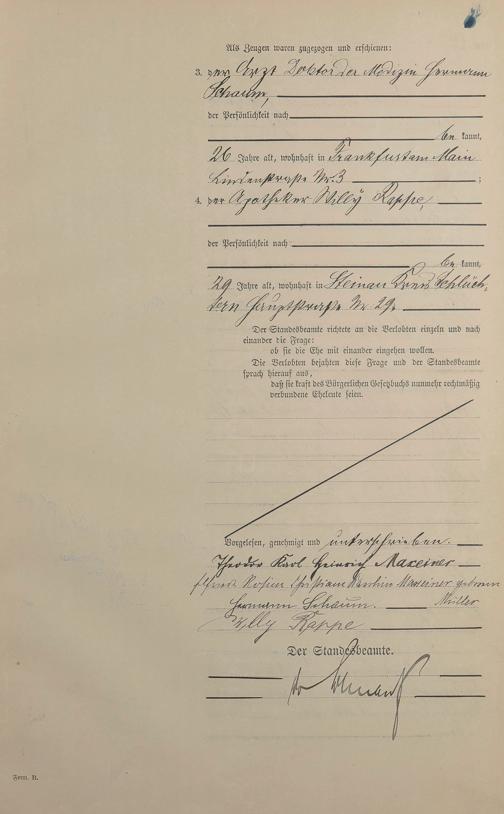 Als Zeugen waren zugezogen und erschienen:
3. der Arzt Doktor der Medizin Hermann
Schaum,
der Persönlichkeit nach
be kannt,
26 Jahre alt, wohnhaft in Frankfurt am Main
Lindenstraße Nr. 3 ;
4. der Apotheker Willy Rappe,
der Persönlichkeit nach
be kannt,
29 Jahre alt, wohnhaft in Steinau Kreis Schlüch-
tern Hauptstraße Nr. 29.
Der Standesbeamte richtete an die Verlobten einzeln und nach
einander die Frage:
ob sie die Ehe mit einander eingehen wollen.
Die Verlobten bejahten diese Frage und der Standesbeamte
sprach hierauf aus,
daß sie kraft des Bürgerlichen Gesetzbuchs nunmehr rechtmäßig
verbundene Eheleute seien.
Vorgelesen, genehmigt und unterschrieben.
Theodor Karl Heinrich Maxeiner
Christiane Maxeiner geborene
Müller
Hermann Schaum.
Willy Rappe
Der Standesbeamte.
Form. B.